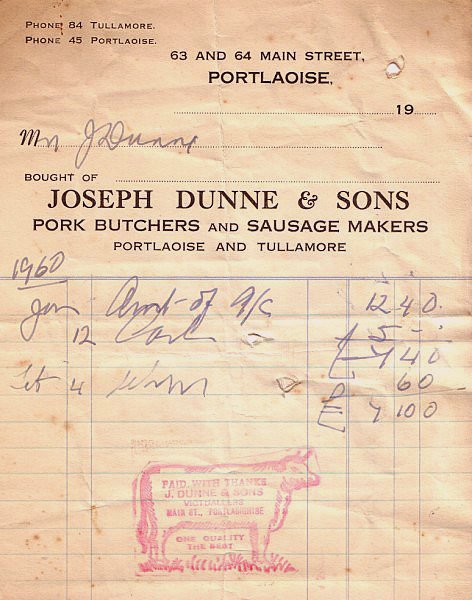 PHONE 84 TULLAMORE.
PHONE 45 PORTLAOISE.
63 AND 64 MAIN STREET,
PORTLAOISE,
19
Mr J Dunne
BOUGHT OF
JOSEPH DUNNE & SONS
PORK BUTCHERS AND SAUSAGE MAKERS
PORTLAOISE AND TULLAMORE
1960
Jan Amt of a/c 12 4 0
12 Cash 5 - -
7 4 0
4 6 0
£ 7 10 0
PAID WITH THANKS
J. DUNNE & SONS
VICTUALLERS
MAIN ST., PORTLAOIGHISE
ONE QUALITY
THE BEST